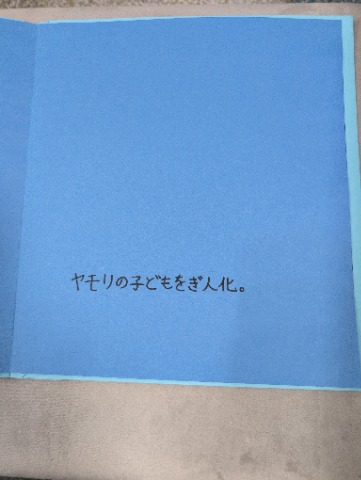 ヤモリの子どもをぎ人化。